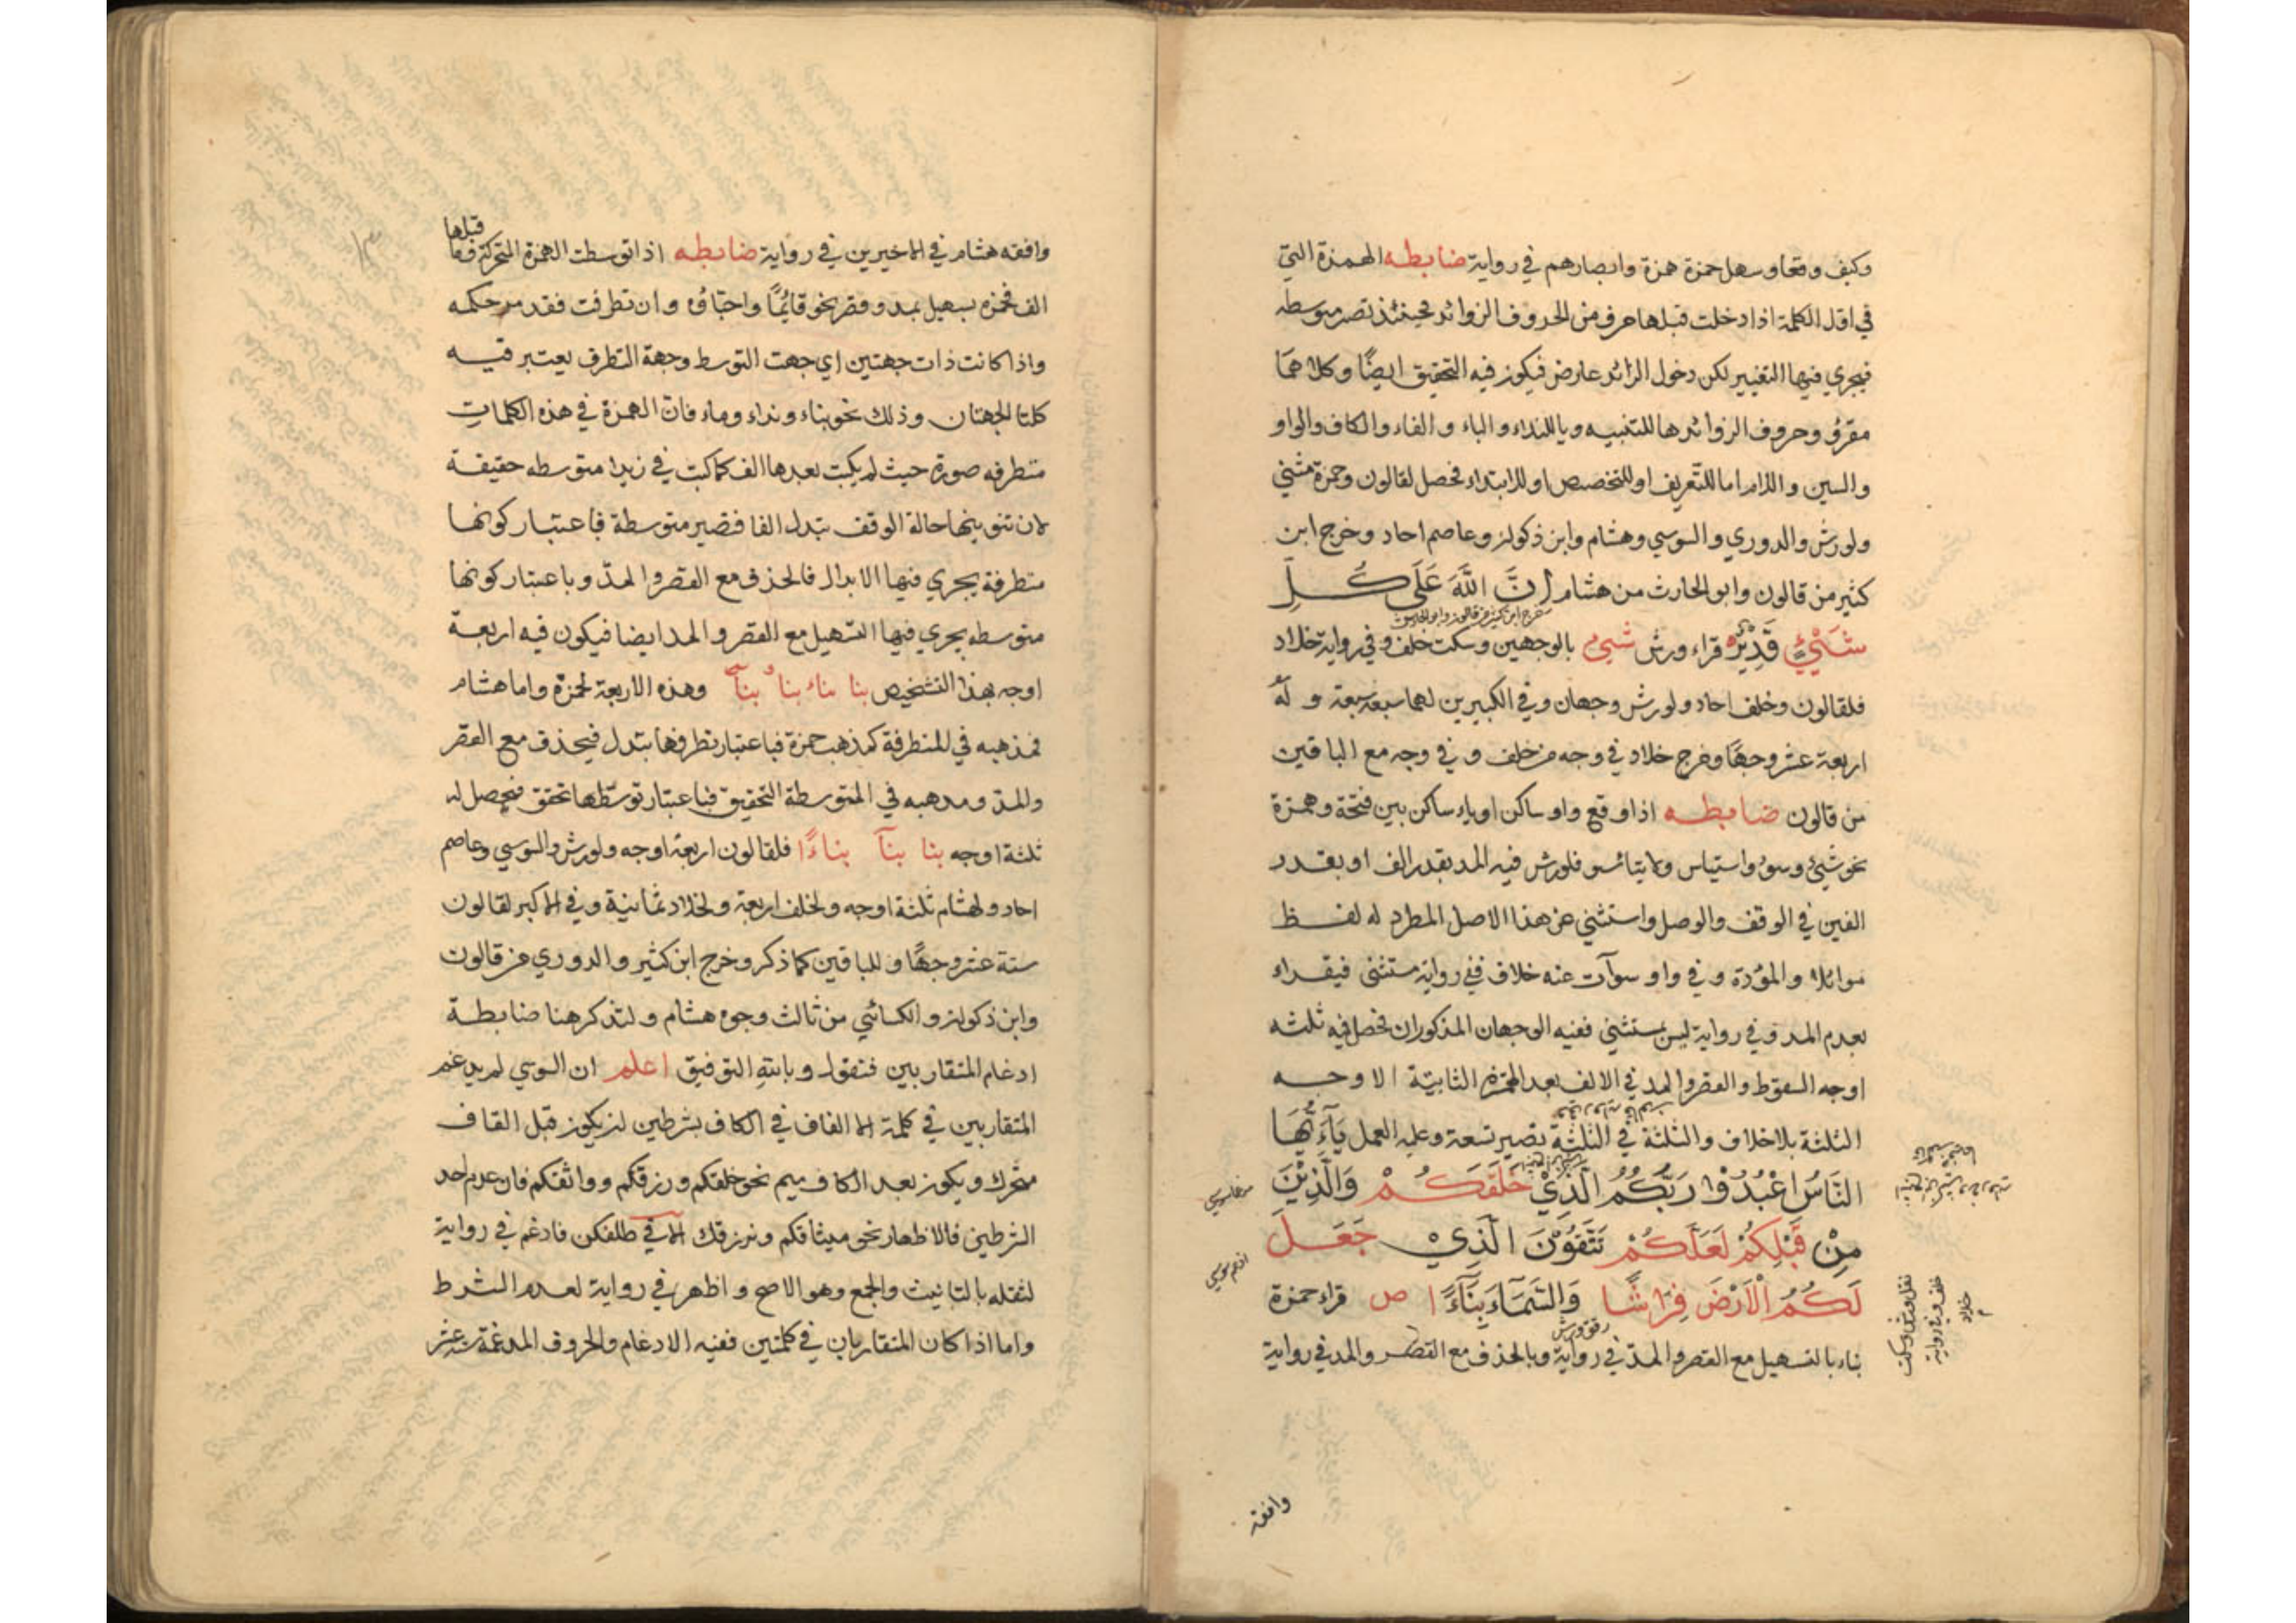 وكيف وقعا وسهل حمزة همزة وابصارهم في رواية ضابطه الهمزة التي
في اول الكلمة اذا دخلت قبلها حرف من الحروف الزوائد فحينئذ تصير متوسطه
فيجري فيها التغيير لكن دخول الزائد عارض فيكون فيه التحقيق ايضًا وكلاهما
مقرؤ وحروف الزوائد ها للتنبيه ويا للنداء والباء والفاء والكاف والواو
والسين واللام اما للتعريف او للتخصيص او للابتداء فحصل لقالون وحمزة مثنى
ولورش والدوري والسوسي وهشام وابن ذكوان وعاصم احاد وخرج ابن
كثير من قالون وابو الحارث من هشام اِنَّ اللّٰهَ عَلَى كُلِّ
شَيْءٍ قَدِيْرٌ قراء ورش شيء بالوجهين وسكت خلف وفي رواية خلاد
فلقالون وخلف احاد ولورش وجهان وفي الكبيرين لهما سبعة سبعة وله
اربعة عشر وجهًا وخرج خلاد في وجه من خلف و في وجه مع الباقين
من قالون ضابطه اذا وقع واو ساكن او ياء ساكن بين فتحة وهمزة
نحو شيء وسوء واستياس ولا يتائسو فلورش فيه المد بقدر الف او بقدر
الفين في الوقف والوصل واستثني عن هذا الاصل المطرد له لفظ
موائلا والمؤدة و في واو سوآت عنه خلاف ففي رواية مستثنى فيقراء
بعدم المد وفي رواية ليس بمستثنى ففيه الوجهان المذكوران فحصل فيه ثلثه
اوجه السقوط والقصر والمد في الالف بعد الهمزة الثابتة الاوجه
الثلثة بلا خلاف والثلثة في الثلثة تصير تسعة وعليه العمل يَآءَيُّهَا
النَّاسُ اعْبُدُوْا رَبَّكُمُ الَّذِيْ خَلَقَكُمْ وَالَّذِيْنَ
مِنْ قَبْلِكُمْ لَعَلَّكُمْ تَتَّقُوْنَ الَّذِيْ جَعَلَ
لَكُمُ الْاَرْضَ فِرَاشًا وَالسَّمَاءَ بِنَآءً ا ص قراء حمزة
بناء بالتسهيل مع القصر والمد في رواية وبالحذف مع القصر والمد في رواية
رقق ورش
نقل ورش وسكت
خلف وفي رواية
خلاد
وافقه
وافقه هشام في الاخيرين في رواية ضابطه اذا توسطت الهمزة المتحركة فما قبلها
الف فحمزه يسهيل بمد وقصر نحو قائمًا واحباؤه وان تطرفت فقد مر حكمه
واذا كانت ذات جهتين اي جهت التوسط وجهة التطرف يعتبر فيه
كلتا الجهتان وذلك نحو بناء ونداء وماء فان الهمزة في هذه الكلمات
متطرفه صورة حيث لم يكتب بعدها الف كما كتب في زيدا متوسطه حقيقة
لان تنوينها حالة الوقف بتدل الفا فتصير متوسطة فباعتبار كونها
متطرفة يجري فيها الابدال فالحذف مع القصر والمد وباعتبار كونها
متوسطه يجري فيها التسهيل مع القصر والمد ايضا فيكون فيه اربعة
اوجه بهذا التشخيص بنا بناء بنا بنآ وهذه الاربعة لحمزة واما هشام
فمذهبه في المتطرفة كمذهب حمزة فباعتبار تطرفها بتدل فيحذف مع القصر
والمد ومدهبه في المتوسطة التحقيق فباعتبار توسطها تحقق فحصل له
ثلثة اوجه بنا بنآ بناءًا فلقالون اربعة اوجه ولورش والسوسي وعاصم
احاد ولهشام ثلثة اوجه ولخلف اربعة ولخلاد ثمانية وفي الاكبر لقالون
ستة عشر وجهًا وللباقين كما ذكر وخرج ابن كثير والدوري من قالون
وابن ذكوان والكسائي من ثالث وجوه هشام ولنذكر هنا ضابطة
ادغام المتقاربين فنقول وبالله التوفيق اعلم ان السوسي لم يدغم
المتقاربين في كلمة الا القاف في الكاف بشرطين ان يكون قبل القاف
متحرك ويكون بعد الكاف ميم نحو خلقكم ورزقكم وواثقكم فان عدم احد
الشرطين فالاظهار نحو ميثاقكم ونرزقك الا في طلقكن فادغم في رواية
لثقله بالتانيث والجمع وهو الاصح و اظهر في رواية لعدم الشرط
واما اذا كان المتقاربان في كلمتين ففيه الادغام والحروف المدغمة ستة عشر